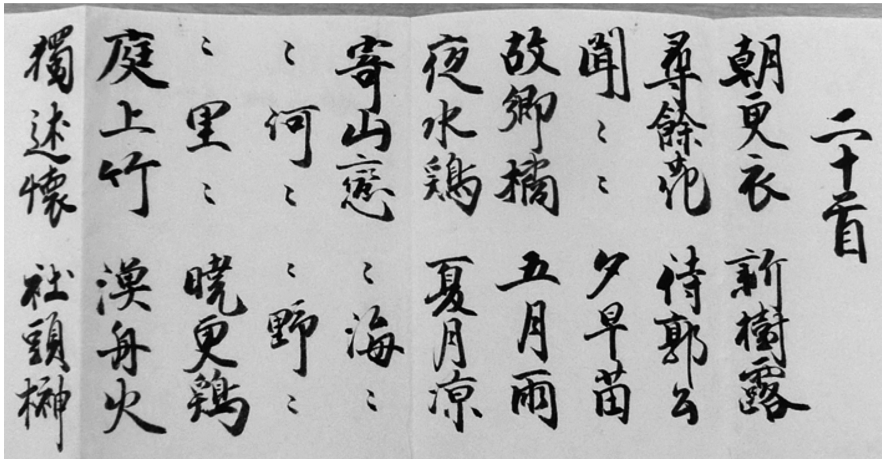 二十首
朝更衣 新樹露
尋餘花 待郭公
聞ミミ 夕早苗
故郷橘 五月雨
夜水鶏 夏月凉
寄山戀 ミ海ミ
ミ河ミ ミ野ミ
ミ里ミ 暁更鶏
庭上竹 漁舟火
獨述懐 社頭榊